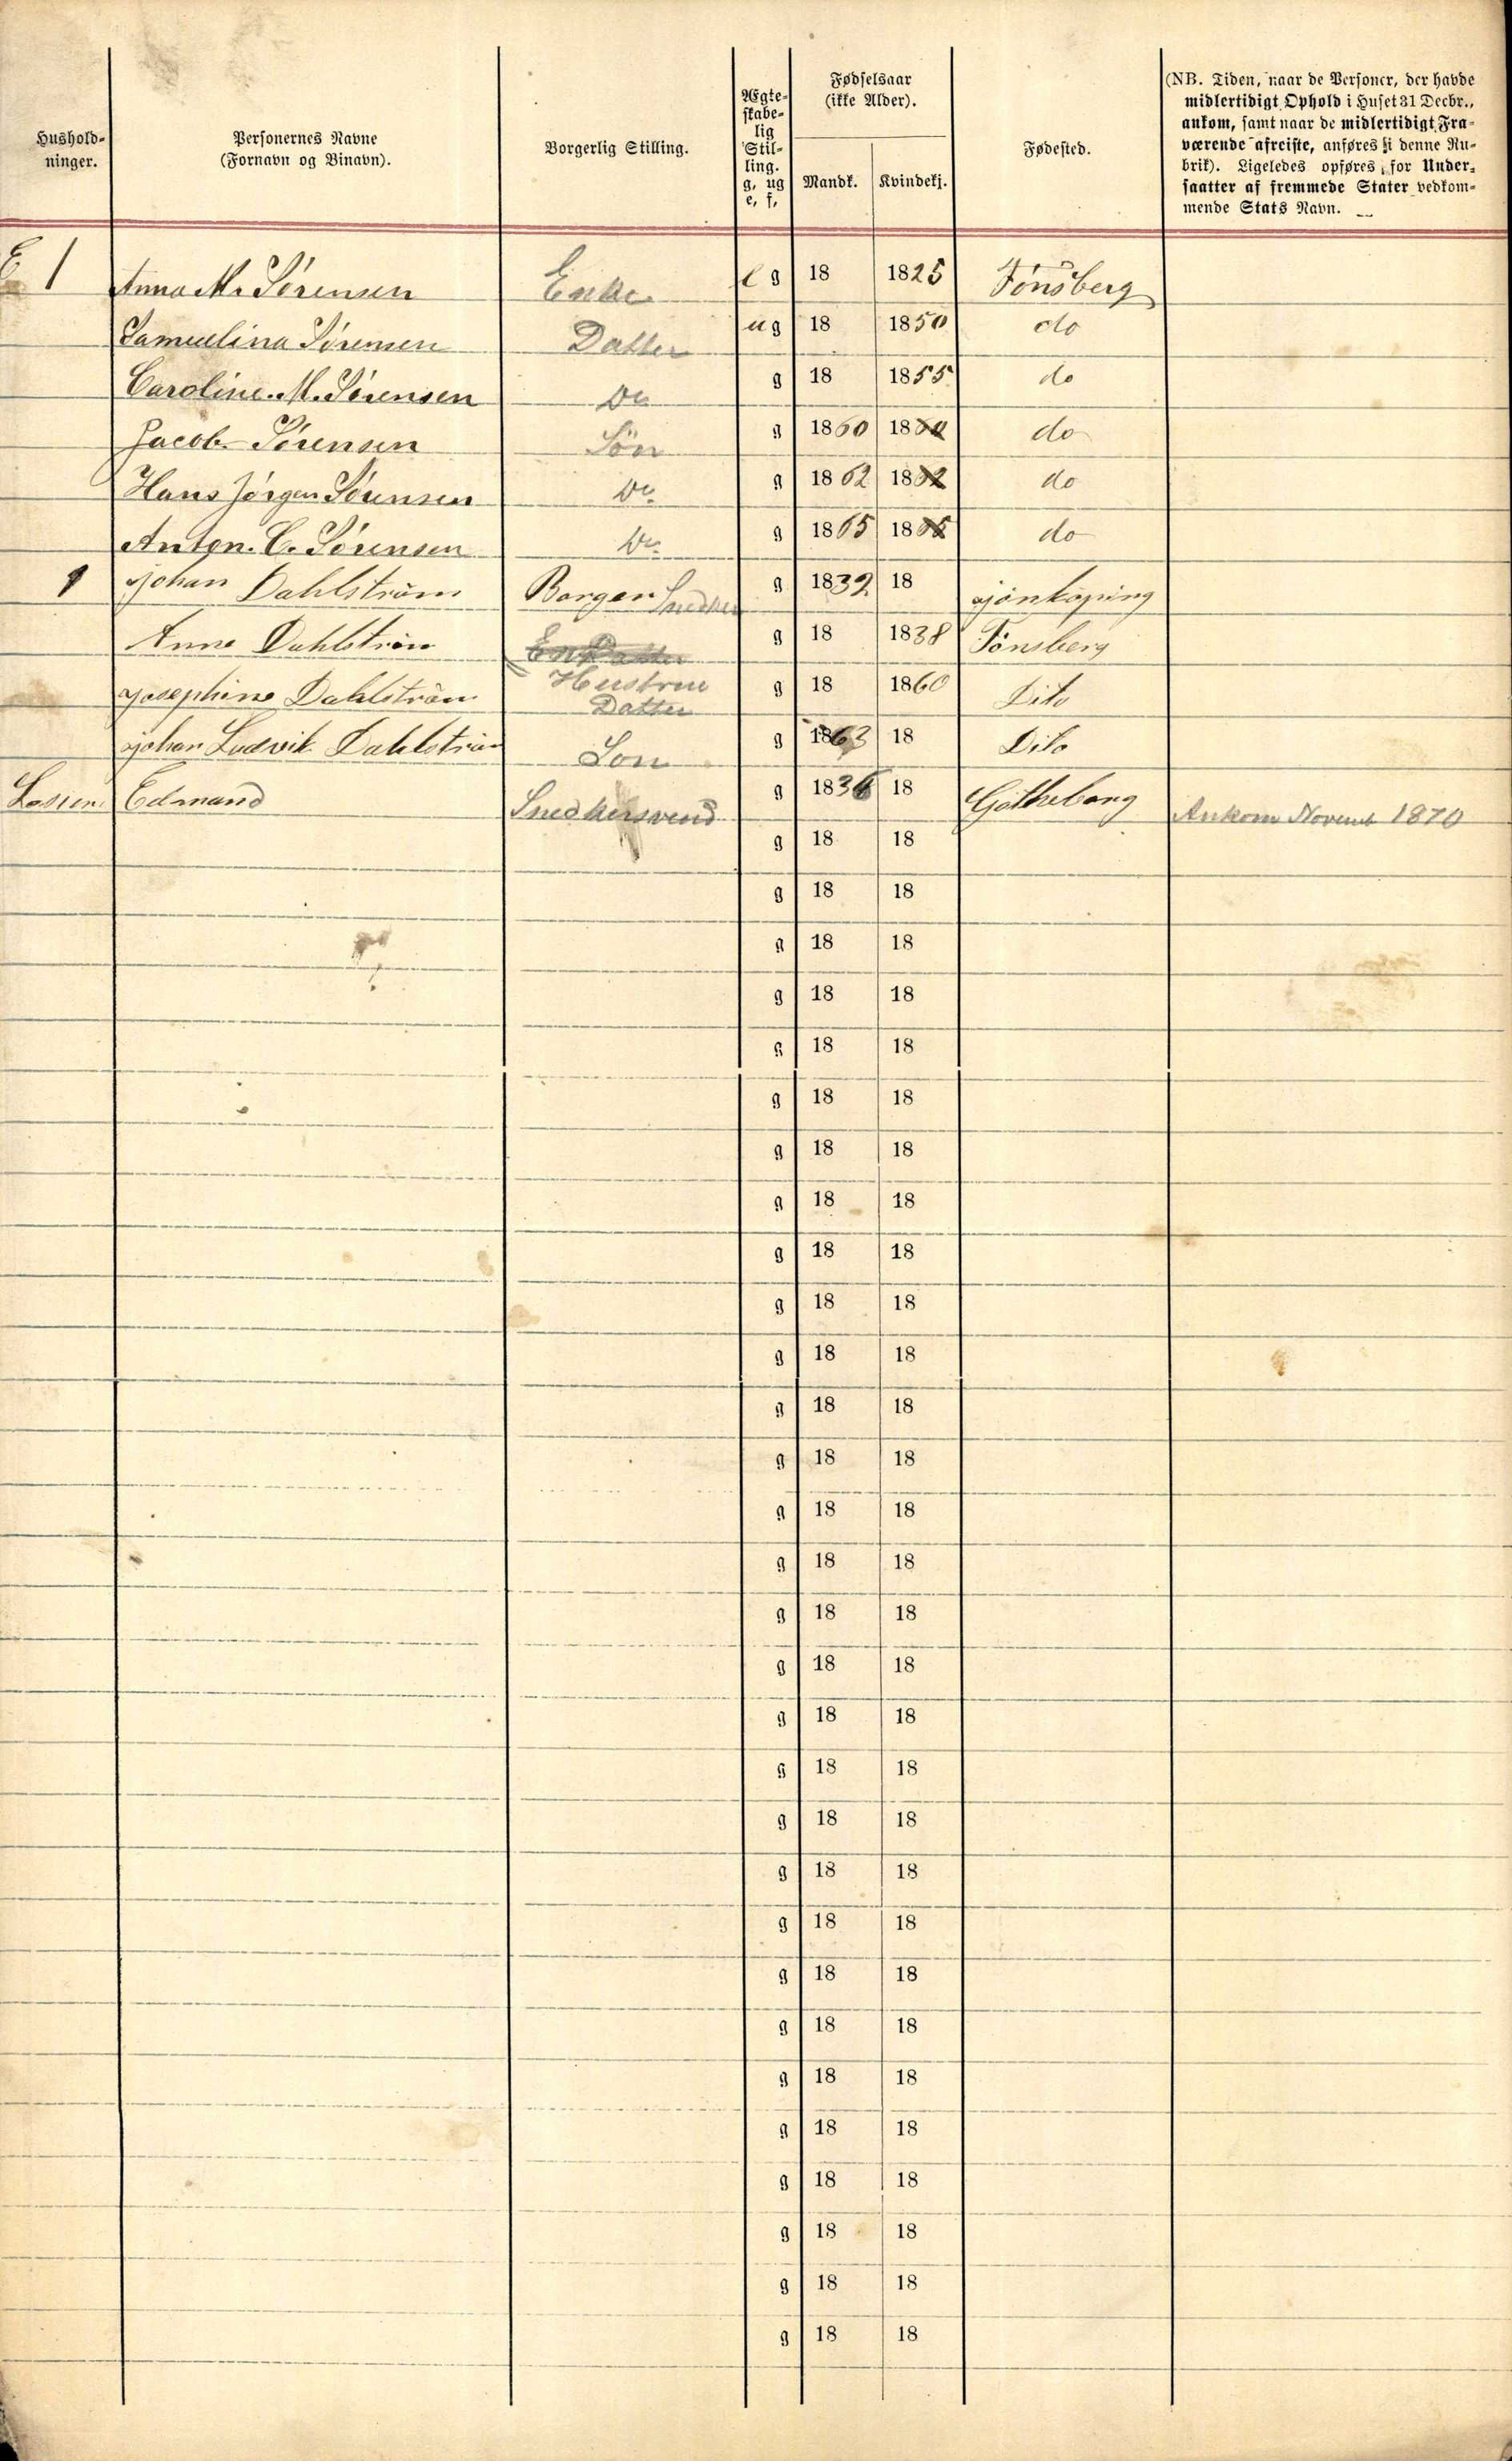 Hushold-
ninger.
Personernes Navne
(Fornavn og Binavn).
Borgerlig Stilling.
Ægte-
skabe-
lig
Stil-
ling.
g, ug
e, f,
Fødselsaar
(ikke Alder).
Mandk.
Kvindekj.
Fødested.
(NB. Tiden, naar de Personer, der havde
midlertidigt Ophold i Huset 31 Decbr.,
ankom, samt naar de midlertidigt Fra-
værende afreiste, anføres i denne Ru-
brik). Ligeledes opføres for Under-
saatter af fremmede Stater vedkom-
mende Stats Navn.
E 1 Anna M. Sørensen Enke e g 18 1825 Tönsberg
Samuelina Sörensen Datter ug 18 1850 do
Caroline. M. Sörensen Do g 18 1855 do
Jacob Sörensen Sön g 1860 18 do
Hans Jörgen Sörensen Do g 1862 18 do
Anton. C. Sörensen Do g 1865 18 do
1 Johan Dahlström Borger Snedker g 1832 18 Jönköping
Anne Dahlström Hustrue g 18 1838 Tönsberg
Josephine Dahlström Datter g 18 1860 Dito
Johan Ludvik Dahlström Son g 1863 18 Dito
Edmand Snedkersvend g 1836 18 Götheborg Ankom Novemb 1870
g 18 18
g 18 18
g 18 18
g 18 18
g 18 18
g 18 18
g 18 18
g 18 18
g 18 18
g 18 18
g 18 18
g 18 18
g 18 18
g 18 18
g 18 18
g 18 18
g 18 18
g 18 18
g 18 18
g 18 18
g 18 18
g 18 18
g 18 18
g 18 18
g 18 18
g 18 18
g 18 18
g 18 18
g 18 18
g 18 18